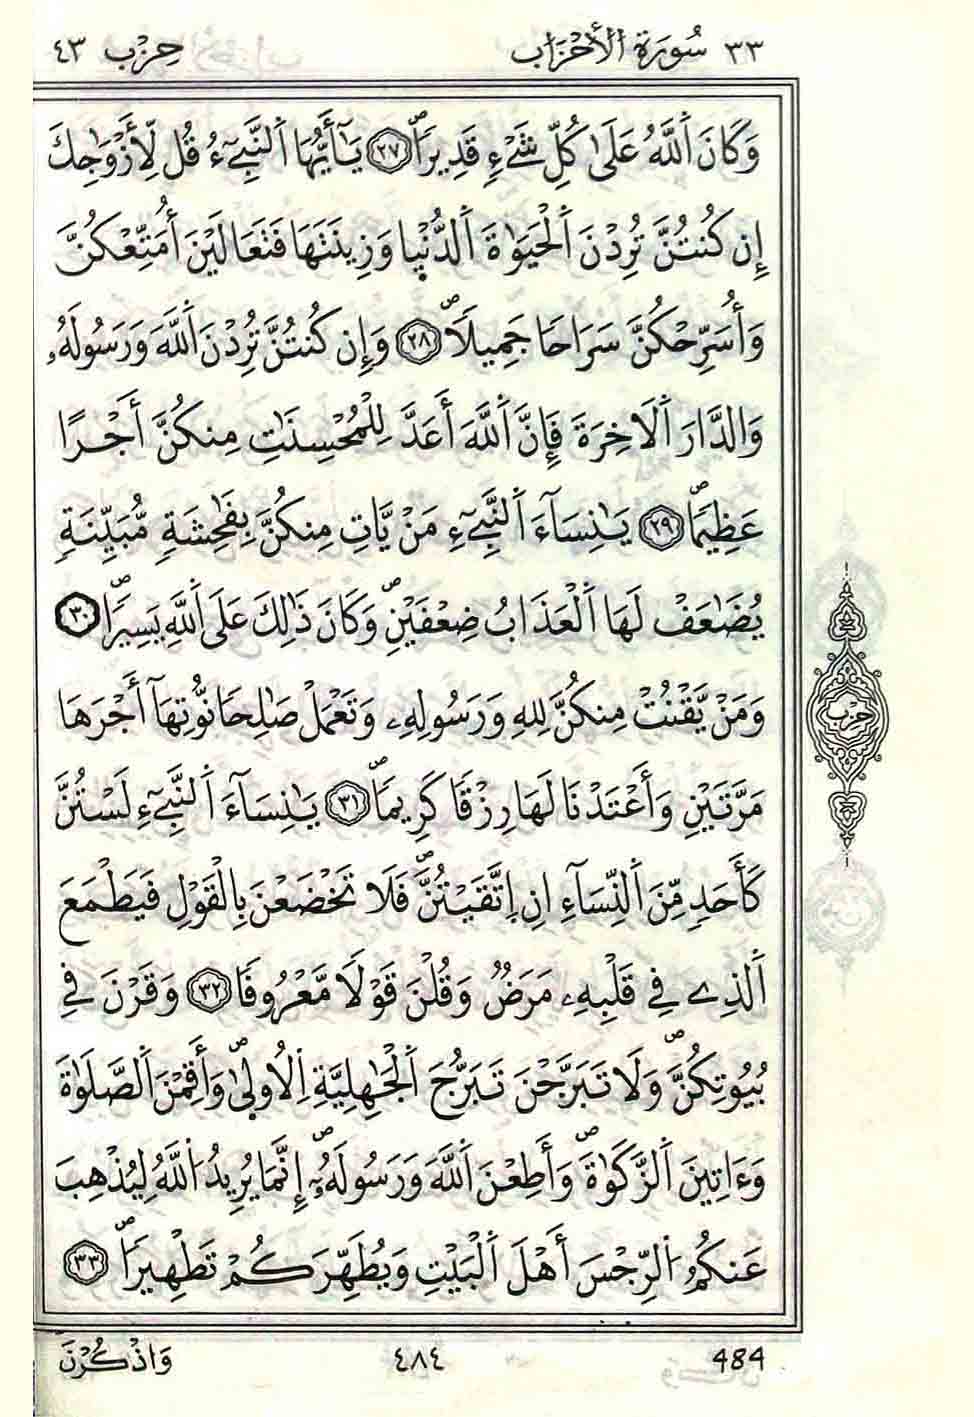 ٣٣ سُورَةُ اُ۬لْأَحْزَاب حِزْب ٤٣
وَكَانَ اَ۬للَّهُ عَلَىٰ كُلِّ شَےْءٖ قَدِيراٗۖ ٢٧ يَٰٓأَيُّهَا اَ۬لنَّبِےٓءُ قُل لِّأَزْوَٰجِكَ
إِن كُنتُنَّ تُرِدْنَ اَ۬لْحَيَوٰةَ اَ۬لدُّنْي۪ا وَزِينَتَهَا فَتَعَالَيْنَ أُمَتِّعْكُنَّ
وَأُسَرِّحْكُنَّ سَرَاحاٗ جَمِيلاٗۖ ٢٨ وَإِن كُنتُنَّ تُرِدْنَ اَ۬للَّهَ وَرَسُولَهُۥ
وَالدَّارَ اَ۬لَاخِرَةَ فَإِنَّ اَ۬للَّهَ أَعَدَّ لِلْمُحْسِنَٰتِ مِنكُنَّ أَجْراً
عَظِيماٗۖ ٢٩ يَٰنِسَآءَ اَ۬لنَّبِےٓءِ مَنْ يَّاتِ مِنكُنَّ بِفَٰحِشَةٖ مُّبَيِّنَةٖ
يُضَٰعَفْ لَهَا اَ۬لْعَذَابُ ضِعْفَيْنِۖ وَكَانَ ذَٰلِكَ عَلَى اَ۬للَّهِ يَسِيراٗۖ ٣٠
وَمَنْ يَّقْنُتْ مِنكُنَّ لِلهِ وَرَسُولِهِۦ وَتَعْمَلْ صَٰلِحاٗ نُّوتِهَآ أَجْرَهَا
مَرَّتَيْنِ وَأَعْتَدْنَا لَهَا رِزْقاٗ كَرِيماٗۖ ٣١ يَٰنِسَآءَ اَ۬لنَّبِےٓءِ لَسْتُنَّ
كَأَحَدٖ مِّنَ اَ۬لنِّسَآءِ اِنِ إِتَّقَيْتُنَّۖ فَلَا تَخْضَعْنَ بِالْقَوْلِ فَيَطْمَعَ
اَ۬لذِے فِے قَلْبِهِۦ مَرَضٞ وَقُلْنَ قَوْلاٗ مَّعْرُوفاٗ ٣٢ وَقَرْنَ فِے
بُيُوتِكُنَّۖ وَلَا تَبَرَّجْنَ تَبَرُّجَ اَ۬لْجَٰهِلِيَّةِ اِ۬لُاول۪ىٰۖ وَأَقِمْنَ اَ۬لصَّلَوٰةَ
وَءَاتِينَ اَ۬لزَّكَوٰةَۖ وَأَطِعْنَ اَ۬للَّهَ وَرَسُولَهُۥٓۖ إِنَّمَا يُرِيدُ اُ۬للَّهُ لِيُذْهِبَ
عَنكُمُ اُ۬لرِّجْسَ أَهْلَ اَ۬لْبَيْتِ وَيُطَهِّرَكُمْ تَطْهِيراٗۖ ٣٣
حِزْب
484 ٤٨٤ وَاذْكُرْنَ